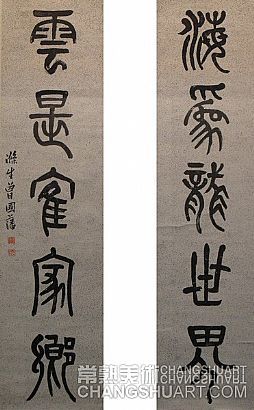 海爲龍世界
雲是寉家鄉
滌生曾國藩
常熟美術
CHANGSHUART
CHANGSHUART.COM